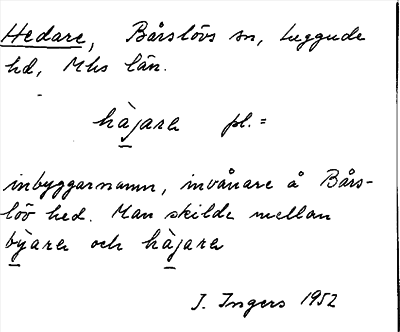 Hedare, Bårslövs sn, Luggude
hd, Mhs län.
hàjara pl. =
inbyggarnamn, invånare å Bårs-
löv hed. Man skilde mellan
bỳara och hàjara
I. Ingers 1952